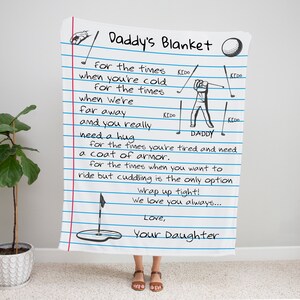 Daddy's Blanket
for the times
when you're cold
for the times
when we're
far away
and you really
need a hug
for the times you're tired and need
a coat of armor.
for the times when you want to
ride but cuddling is the only option
Wrap up tight!
We love you always...
Love,
Your Daughter
KIDD
KIDD
KIDD
KIDD
DADDY